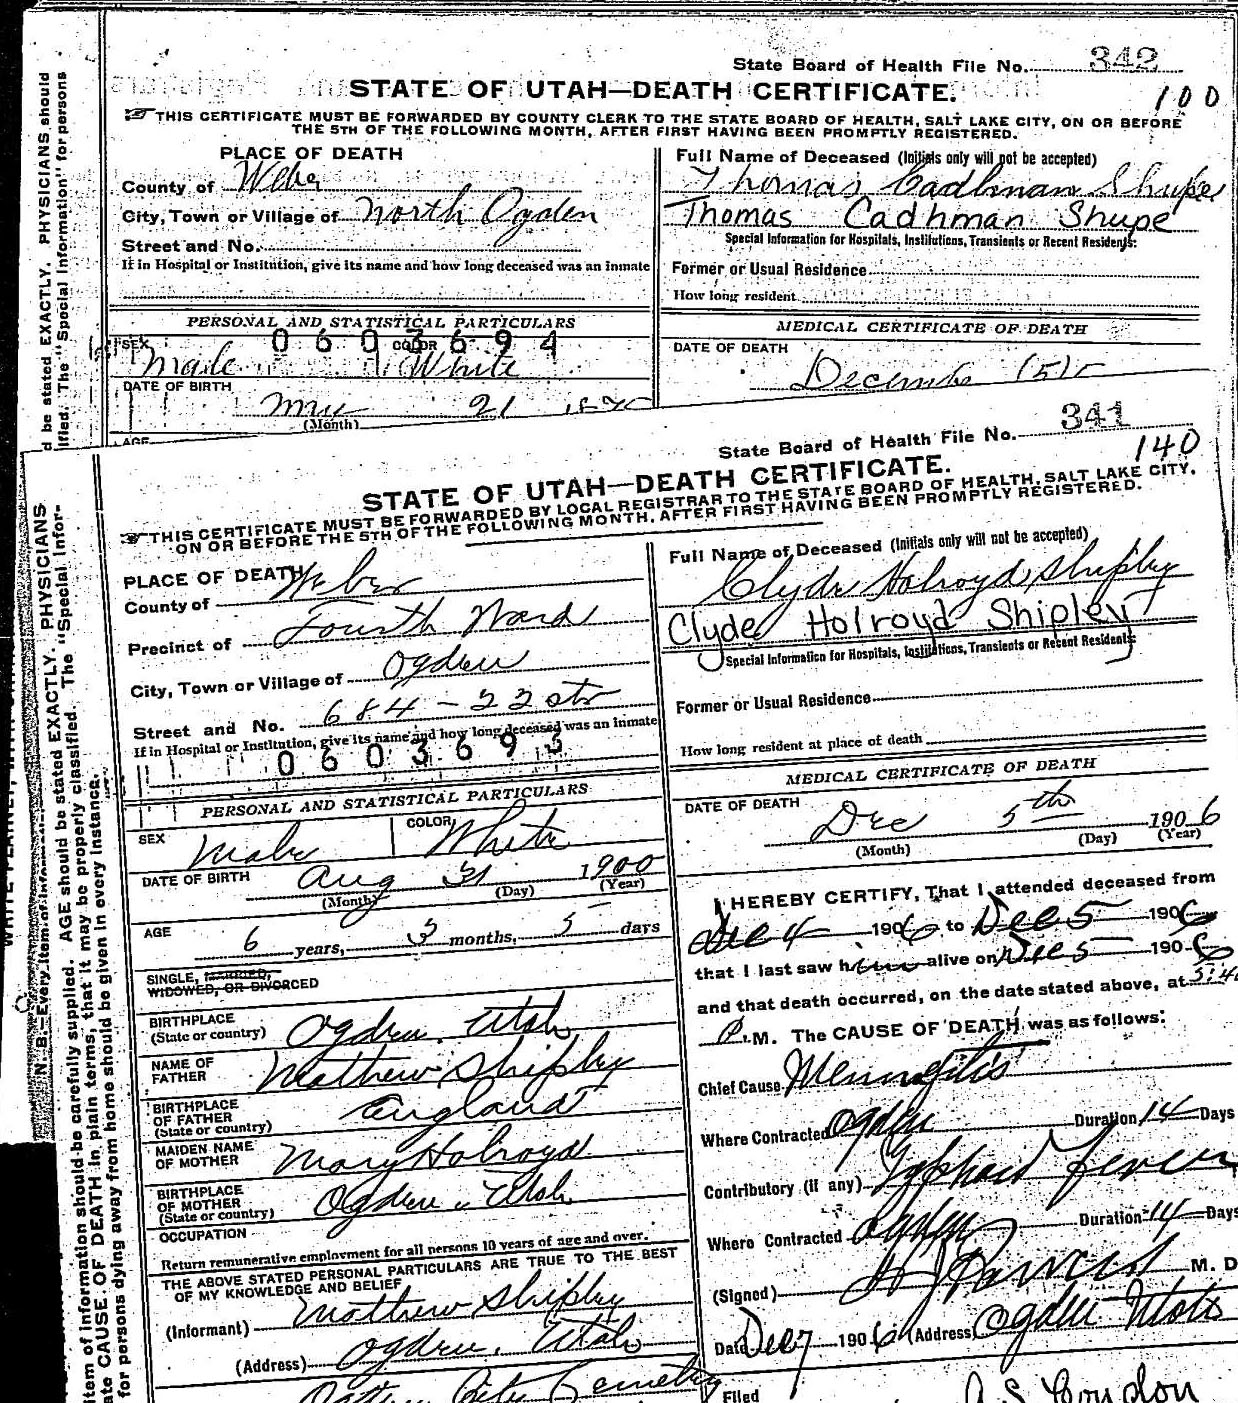 State Board of Health File No. 342
STATE OF UTAH—DEATH CERTIFICATE.
100
THIS CERTIFICATE MUST BE FORWARDED BY COUNTY CLERK TO THE STATE BOARD OF HEALTH, SALT LAKE CITY, ON OR BEFORE
THE 5TH OF THE FOLLOWING MONTH, AFTER FIRST HAVING BEEN PROMPTLY REGISTERED.
PLACE OF DEATH
County of Weber
City, Town or Village of North Ogden
Street and No.
If in Hospital or Institution, give its name and how long deceased was an inmate
Full Name of Deceased (Initials only will not be accepted)
Thomas Cadhman Shupe
Thomas Cadhman Shupe
Special Information for Hospitals, Institutions, Transients or Recent Residents:
Former or Usual Residence
How long resident
PERSONAL AND STATISTICAL PARTICULARS
0603694
SEX Male COLOR White
DATE OF BIRTH
21
(Month)
AGE
MEDICAL CERTIFICATE OF DEATH
DATE OF DEATH
December
State Board of Health File No. 341
140
STATE OF UTAH—DEATH CERTIFICATE.
THIS CERTIFICATE MUST BE FORWARDED BY LOCAL REGISTRAR TO THE STATE BOARD OF HEALTH, SALT LAKE CITY,
ON OR BEFORE THE 5TH OF THE FOLLOWING MONTH, AFTER FIRST HAVING BEEN PROMPTLY REGISTERED.
PLACE OF DEATH
County of Weber
Precinct of Fourth Ward
City, Town or Village of Ogden
Street and No. 684 - 22 str
If in Hospital or Institution, give its name and how long deceased was an inmate
0603693
PERSONAL AND STATISTICAL PARTICULARS
SEX Male COLOR White
DATE OF BIRTH Aug 31 1900
(Month) (Day) (Year)
AGE 6 years, 3 months, 5 days
SINGLE, MARRIED,
WIDOWED, OR DIVORCED
BIRTHPLACE
(State or country) Ogden, Utah
NAME OF
FATHER Mathew Shipley
BIRTHPLACE
OF FATHER
(State or country) England
MAIDEN NAME
OF MOTHER Mary Holroyd
BIRTHPLACE
OF MOTHER
(State or country) Ogden, Utah
OCCUPATION
Return remunerative employment for all persons 10 years of age and over.
THE ABOVE STATED PERSONAL PARTICULARS ARE TRUE TO THE BEST
OF MY KNOWLEDGE AND BELIEF
(Informant) Mathew Shipley
(Address) Ogden, Utah
City Cemetery
Full Name of Deceased (Initials only will not be accepted)
Clyde Holroyd Shipley
Clyde Holroyd Shipley
Special Information for Hospitals, Institutions, Transients or Recent Residents:
Former or Usual Residence
How long resident at place of death
MEDICAL CERTIFICATE OF DEATH
DATE OF DEATH Dec 5th 1906
(Month) (Day) (Year)
I HEREBY CERTIFY, That I attended deceased from
Dec 4 1906 to Dec 5 1906
that I last saw him alive on Dec 5 1906
and that death occurred, on the date stated above, at 5:40
P.M. The CAUSE OF DEATH was as follows:
Chief Cause Mennegitis
Where Contracted Ogden Duration 14 Days
Contributory (if any) Typhoid fever
Where Contracted Ogden Duration 14 Days
(Signed) M. D
Date Dec 7 1906 (Address) Ogden Utah
Filed
N. B.—Every item of information should be carefully supplied. AGE should be stated EXACTLY. PHYSICIANS
state CAUSE OF DEATH in plain terms, that it may be properly classified. The "Special Infor-
for persons dying away from home should be given in every instance.
d be stated EXACTLY. PHYSICIANS should
ified. The "Special Information" for persons